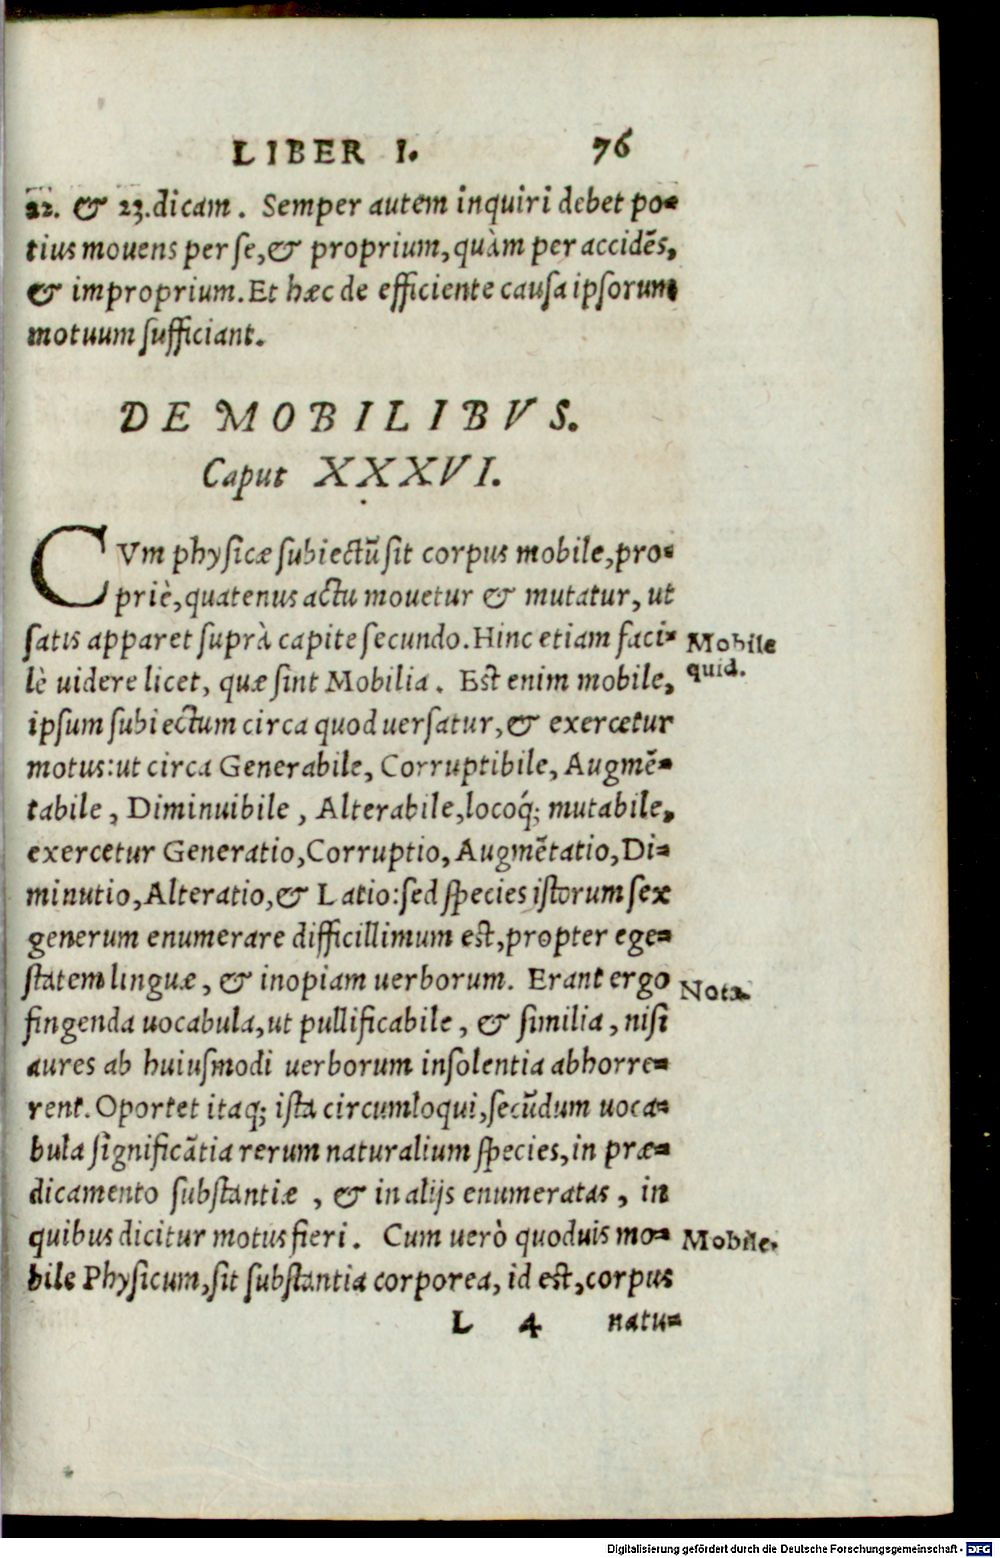 LIBER I. 76
22. & 23. dicam. Semper autem inquiri debet po-
tius mouens per se, & proprium, quàm per accidēs,
& improprium. Et hæc de efficiente causa ipsorum
motuum sufficiant.
DE MOBILIBVS.
Caput XXXVI.
CVm physicæ subiectū sit corpus mobile, pro-
priè, quatenus actu mouetur & mutatur, ut
satis apparet suprà capite secundo. Hinc etiam faci-
Mobile
lè uidere licet, quæ sint Mobilia. Est enim mobile,
quid.
ipsum subiectum circa quod uersatur, & exercetur
motus: ut circa Generabile, Corruptibile, Augmē-
tabile, Diminuibile, Alterabile, locoq́; mutabile,
exercetur Generatio, Corruptio, Augmētatio, Di-
minutio, Alteratio, & Latio: sed species istorum sex
generum enumerare difficillimum est, propter ege-
statem linguæ, & inopiam uerborum. Erant ergo
Nota.
fingenda uocabula, ut pullificabile, & similia, nisi
aures ab huiusmodi uerborum insolentia abhorre-
rent. Oportet itaq; ista circumloqui, secūdum uoca-
bula significātia rerum naturalium species, in præ-
dicamento substantiæ, & in alijs enumeratas, in
quibus dicitur motus fieri. Cum uerò quoduis mo-
Mobile.
bile Physicum, sit substantia corporea, id est, corpus
L 4 natu-
Digitalisierung gefördert durch die Deutsche Forschungsgemeinschaft - DFG